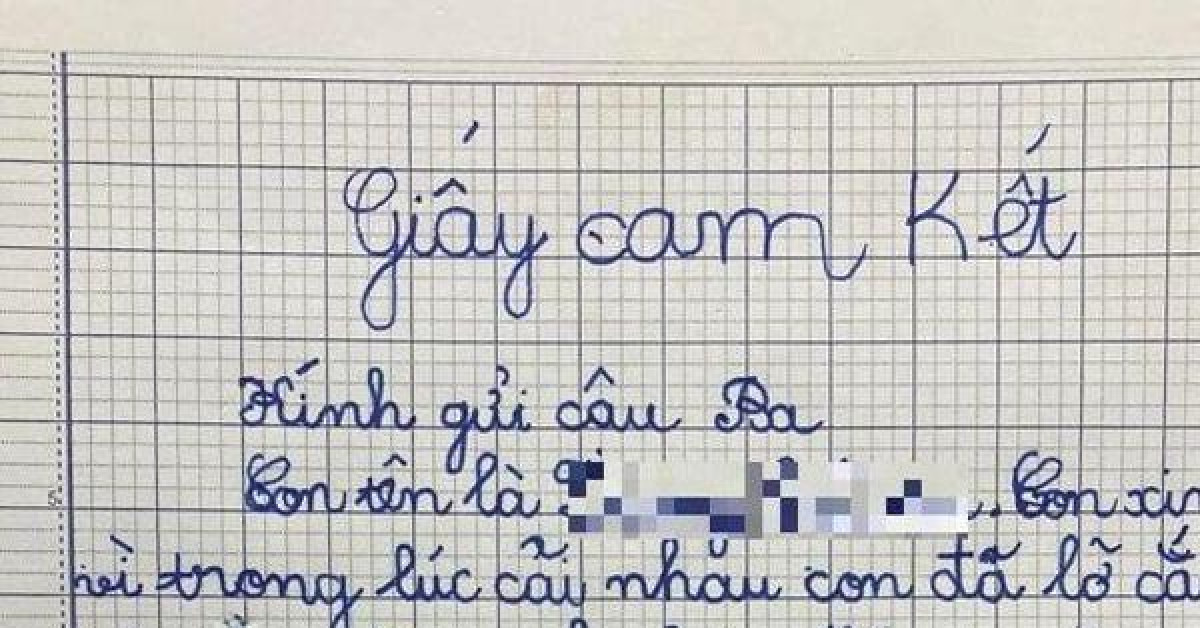 Giấy cam Kết
Kính gửi câu Ba
Con tên là . Con xin
vì trong lúc cãi nhău con đã lỡ cắ